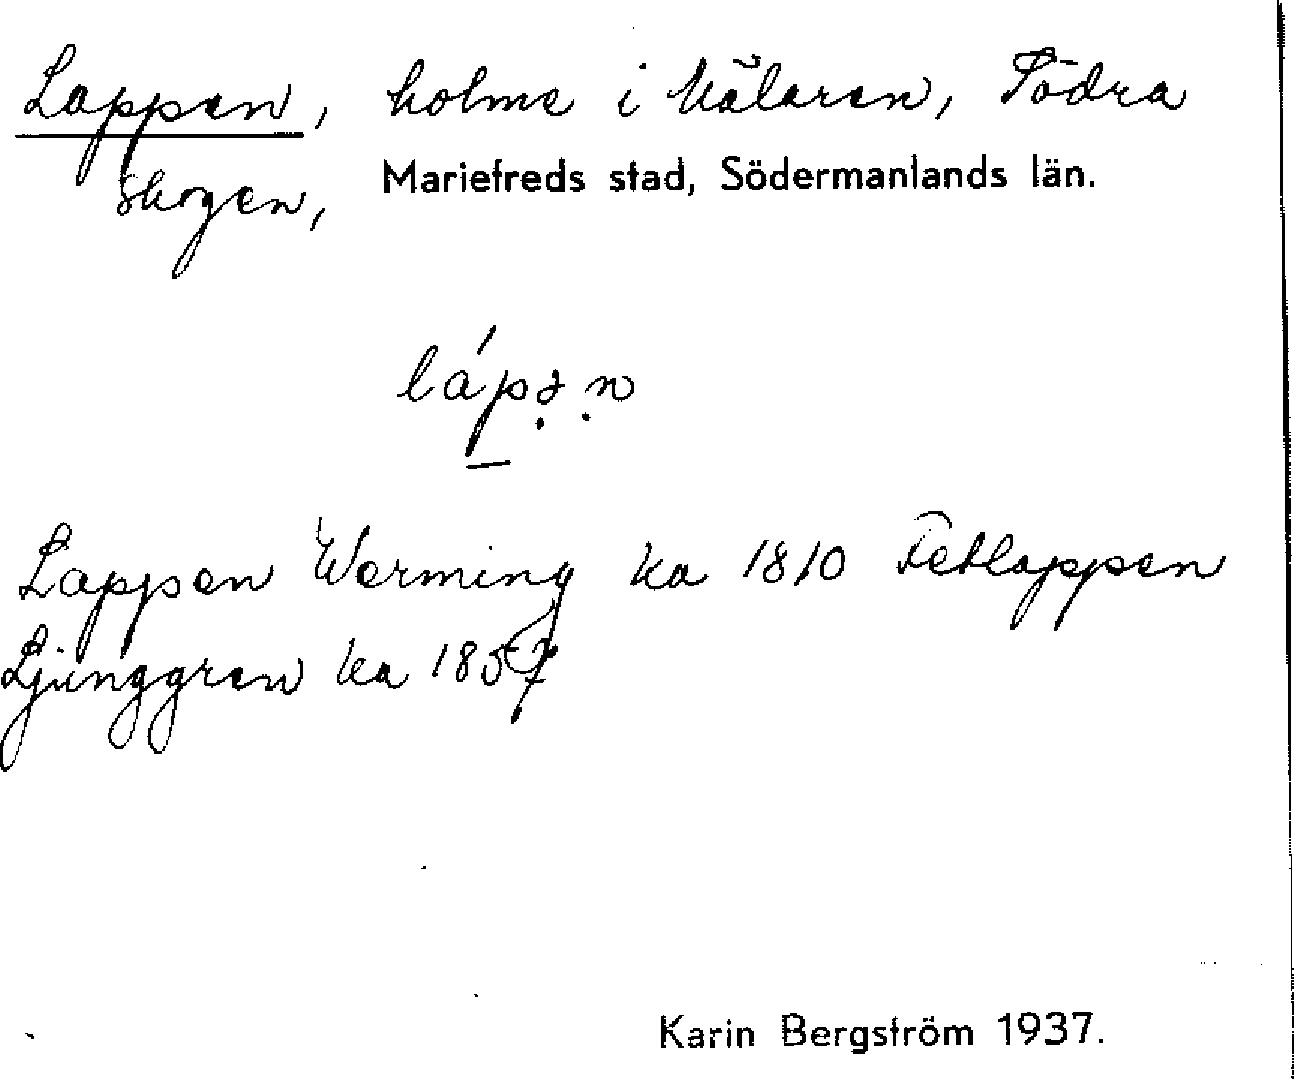 Lappen, holme i Mälaren, Södra
Skogen, Mariefreds stad, Södermanlands län.
lápə̣ṇ
Lappen Werming ka 1810 Fetlappen
Ljunggren ka 1857
Karin Bergström 1937.